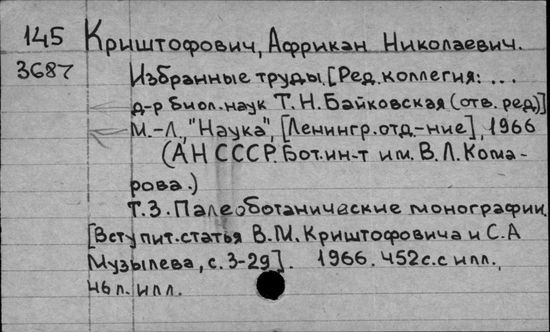 145 Криштофович, Африкан Николаевич.
3687 Избранные труды. [Ред. коллегия: ...
д-р биол. наук Т. Н. Байковская (отв. ред.)]
М.-Л., "Наука", [Ленингр. отд-ние], 1966
(АН СССР. Бот. ин-т им. В. Л. Кома-
рова.)
Т. 3. Палеоботанические монографии.
[Вступит. статья В. М. Криштофовича и С. А
Музылева, с. 3-29]. 1966. 452 с. с илл.,
46 л. илл.